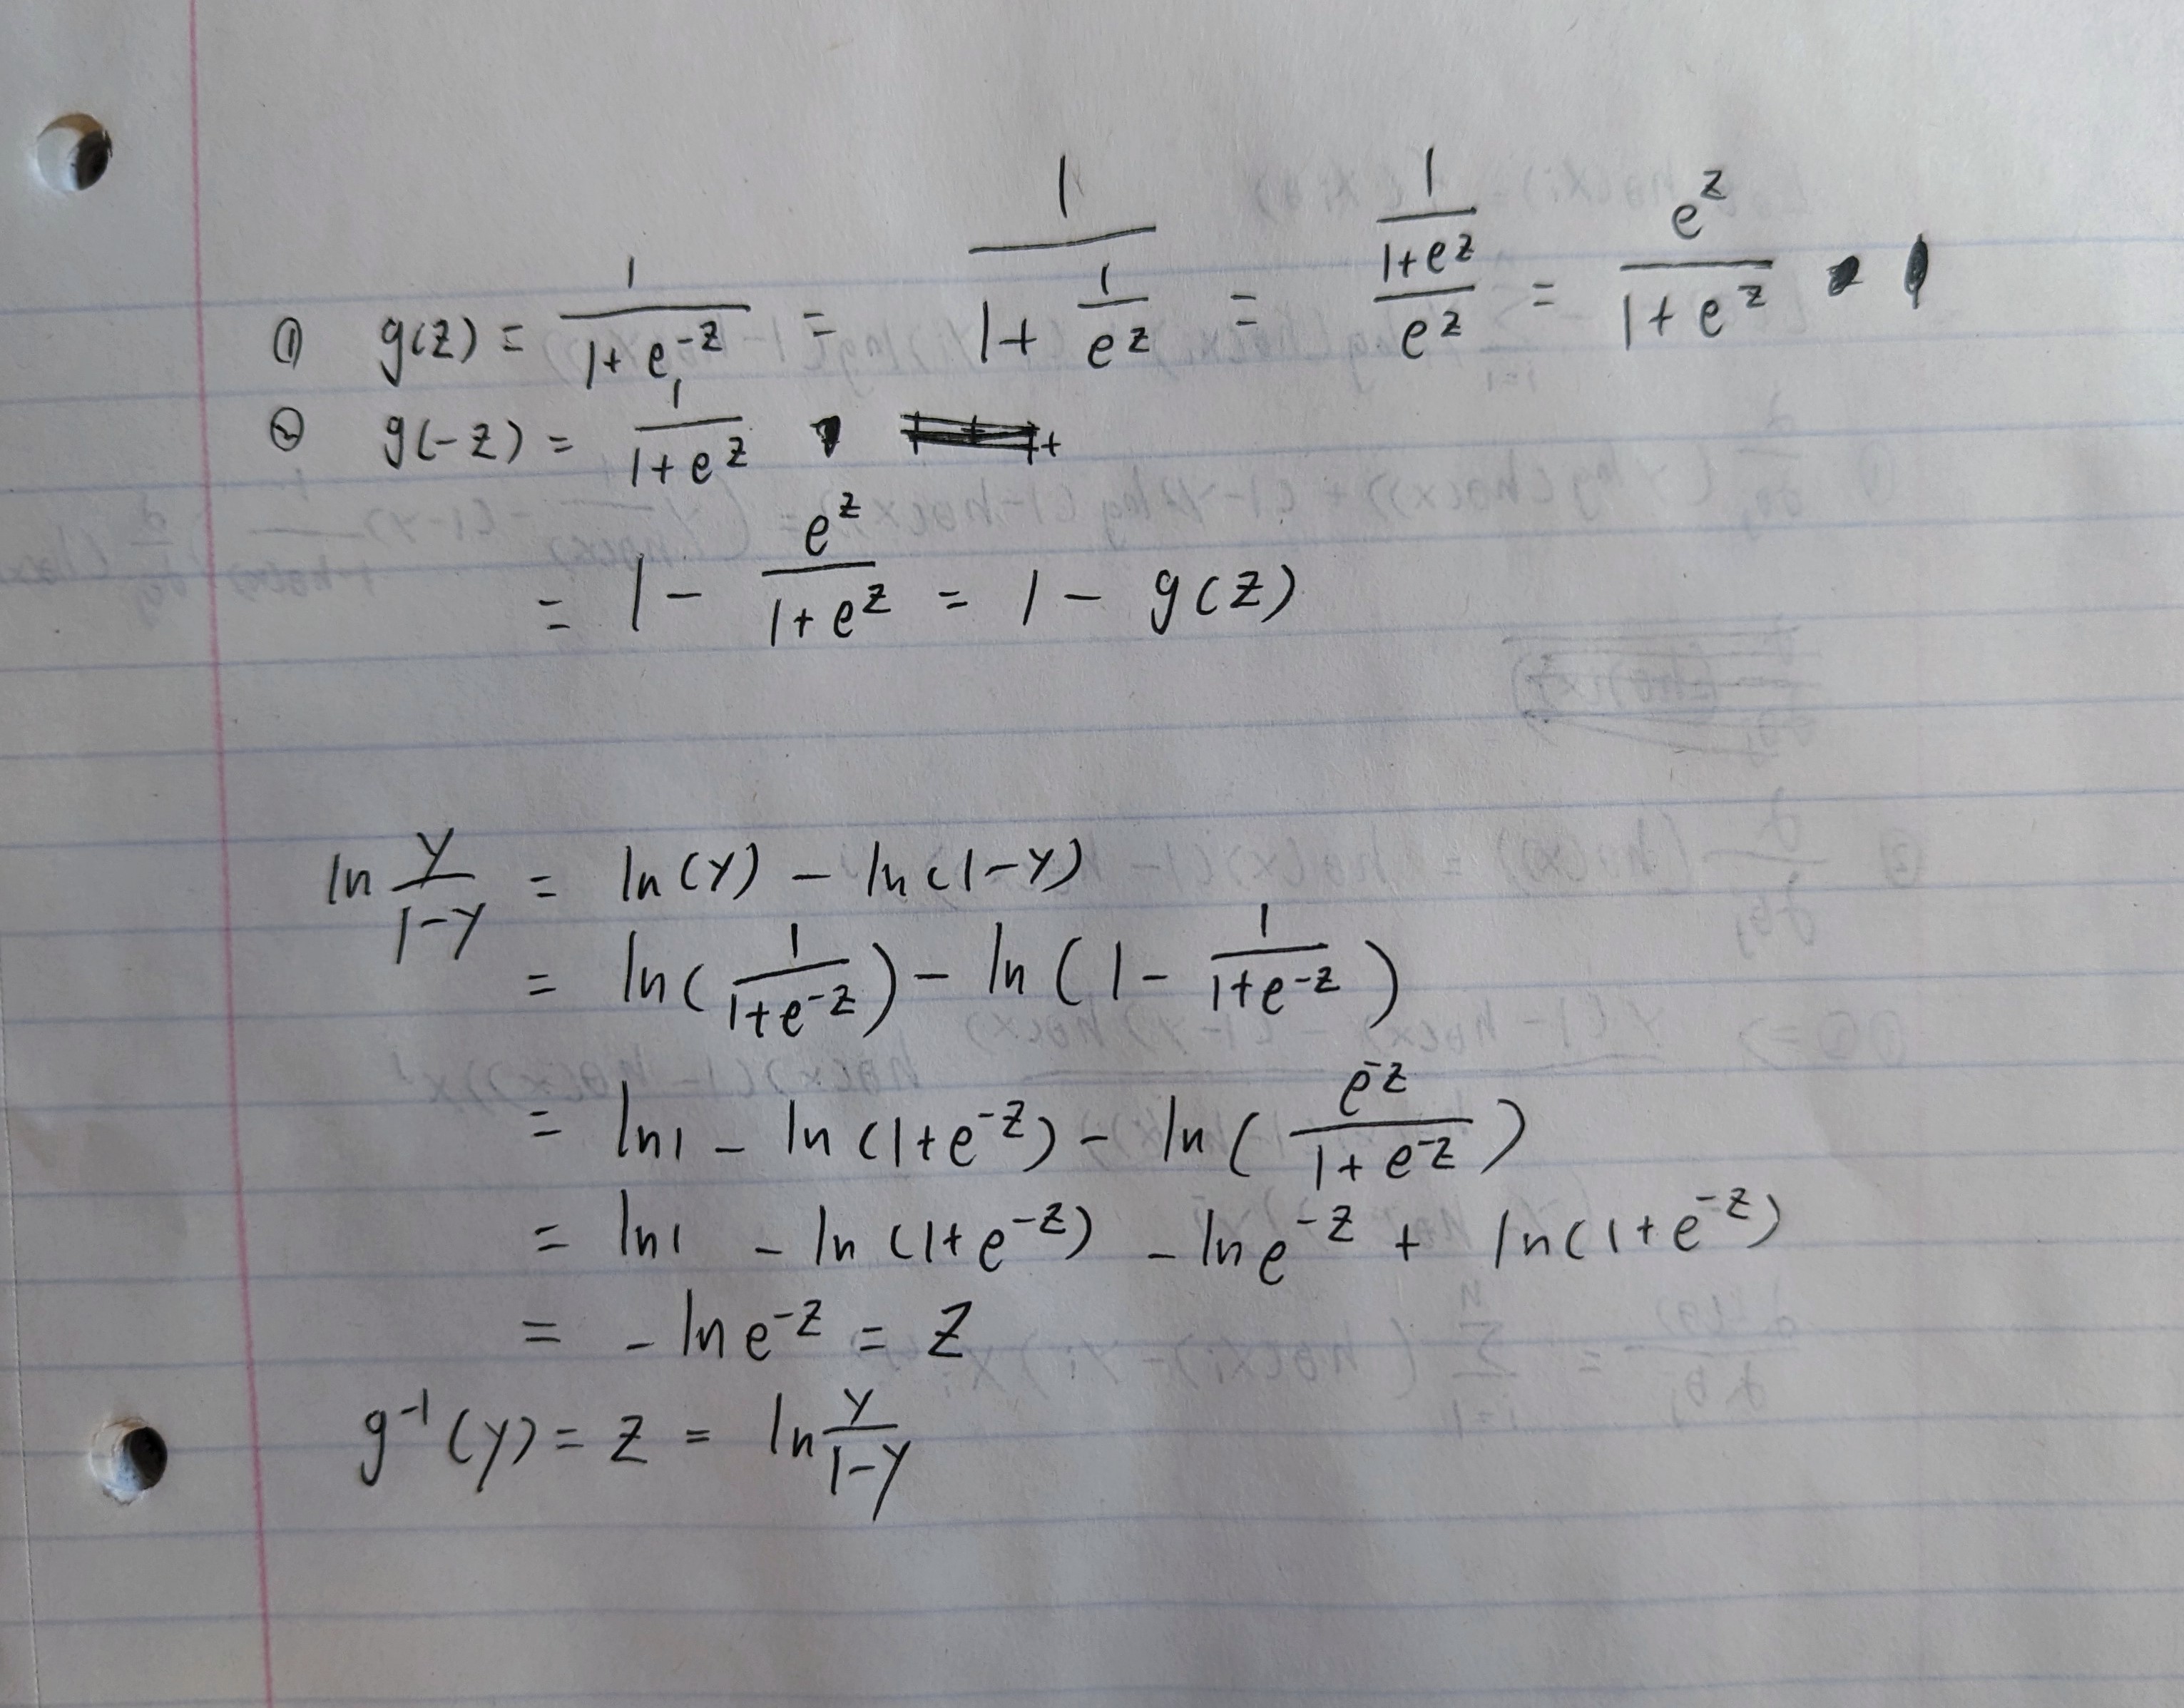 ① g(z) = \frac{1}{1+e^{-z}} = \frac{1}{1+\frac{1}{e^z}} = \frac{1}{\frac{1+e^z}{e^z}} = \frac{e^z}{1+e^z}
② g(-z) = \frac{1}{1+e^z}
= 1 - \frac{e^z}{1+e^z} = 1 - g(z)
ln \frac{y}{1-y} = ln(y) - ln(1-y)
= ln(\frac{1}{1+e^{-z}}) - ln(1 - \frac{1}{1+e^{-z}})
= ln1 - ln(1+e^{-z}) - ln(\frac{e^{-z}}{1+e^{-z}})
= ln1 - ln(1+e^{-z}) - lne^{-z} + ln(1+e^{-z})
= -lne^{-z} = z
g^{-1}(y) = z = ln\frac{y}{1-y}